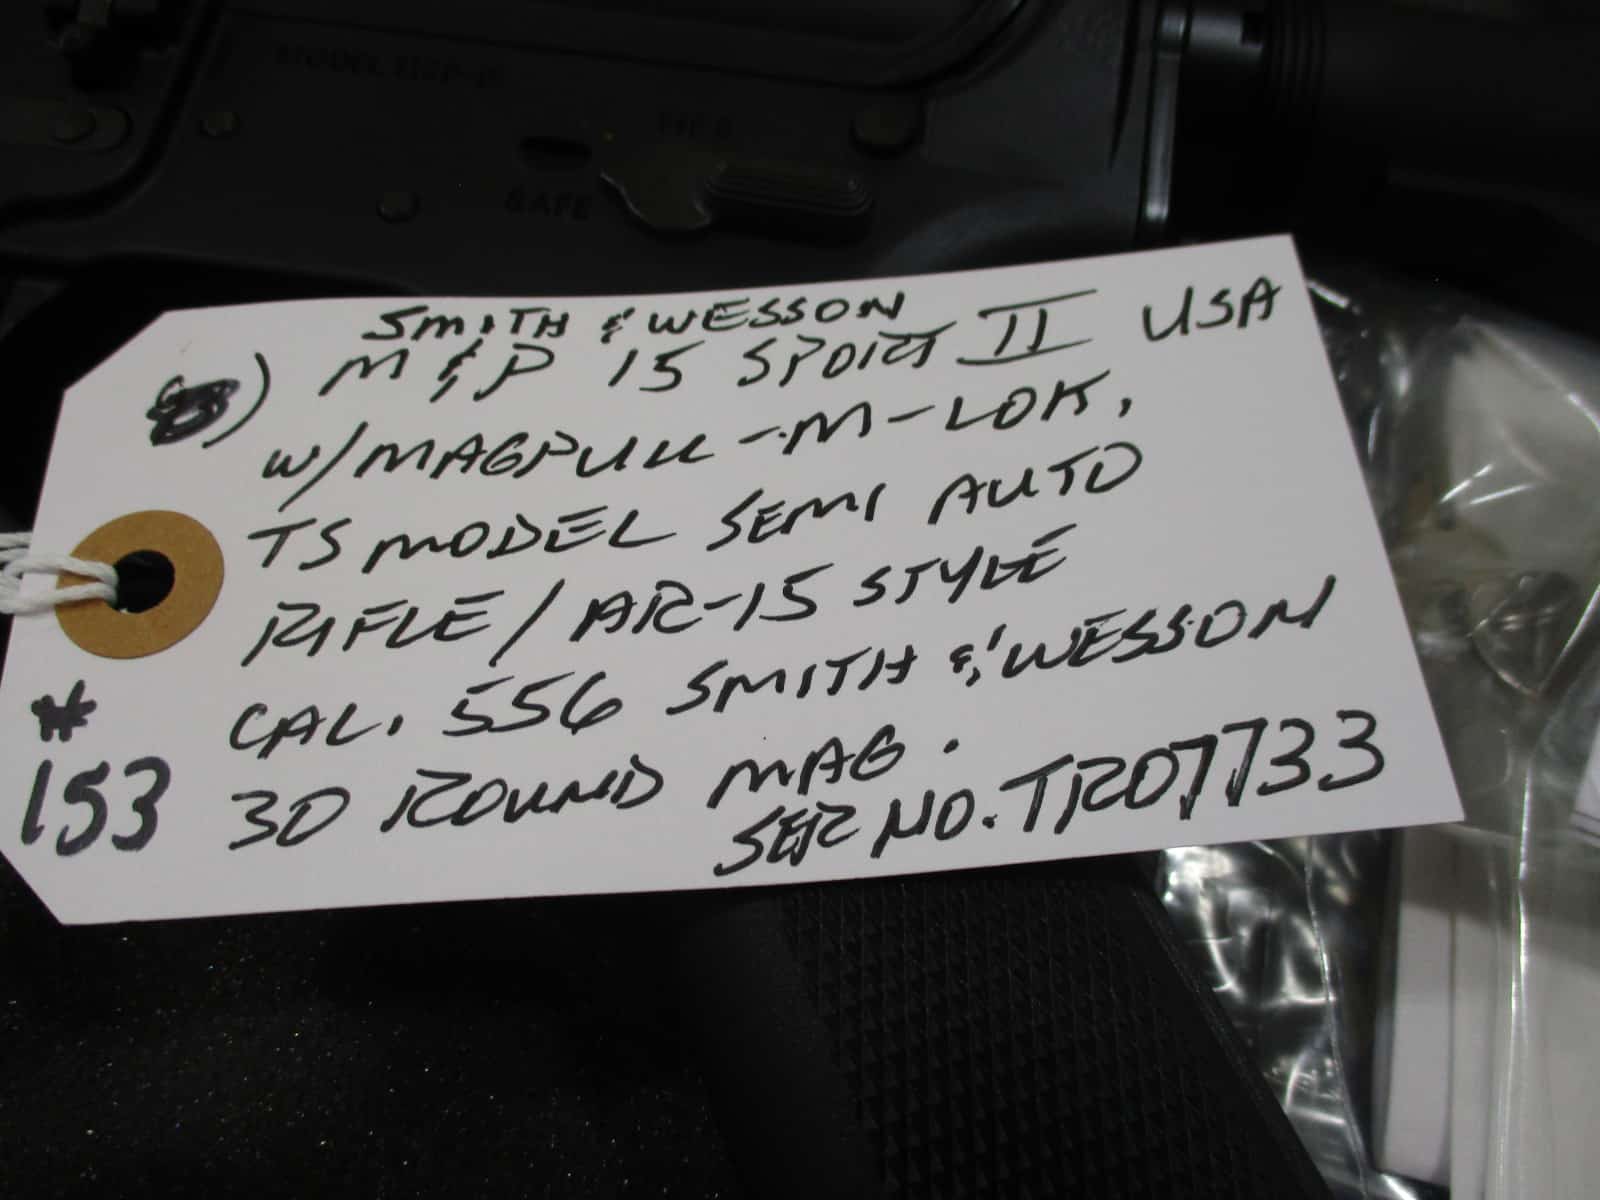 FIRE
SAFE
SMITH & WESSON
M & P 15 SPORT II USA
W/ MAGPULL - M-LOK,
TS MODEL SEMI AUTO
RIFLE / AR-15 STYLE
CAL. 556 SMITH & WESSON
30 ROUND MAG.
SER NO. TR07733
#
153